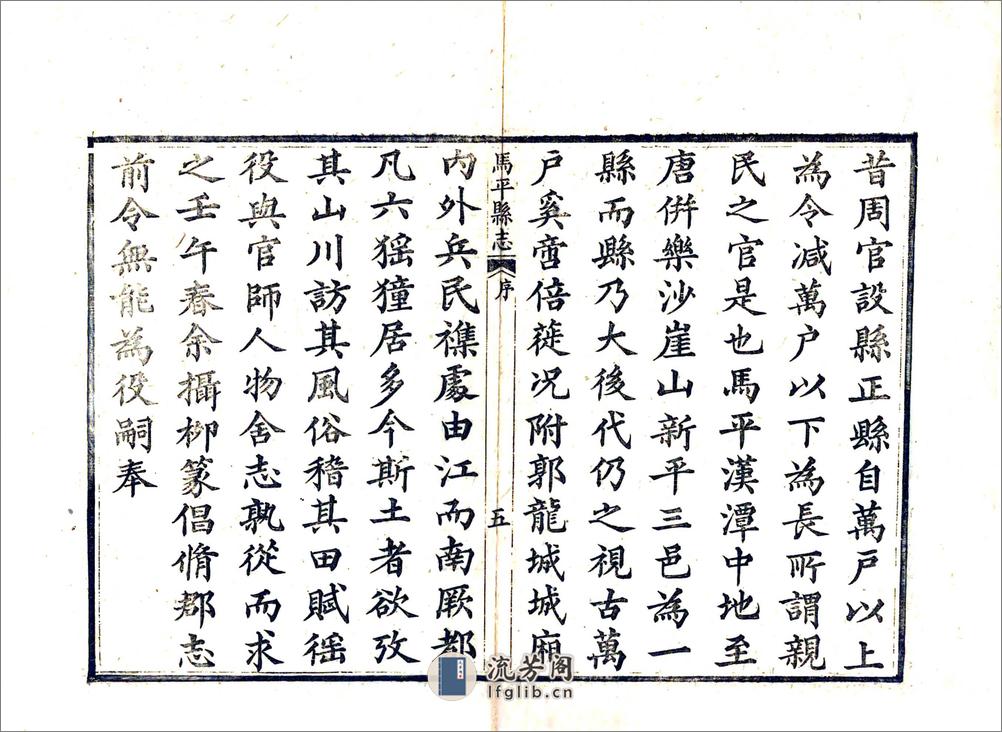 昔周官設縣正縣自萬戸以上
為令减萬户以下為長所謂親
民之官是也馬平漢潭中地至
唐併樂沙崖山新平三邑為一
縣而縣乃大後代仍之視古萬
户奚啻倍蓰况附郭龍城城廂
馬平縣志
序
五
内外兵民襍處由江而南厥都
凡六猺獞居多今斯土者欲攷
其山川訪其風俗稽其田賦徭
役與官師人物舍志孰從而求
之壬午春余攝柳篆倡脩郡志
前令無能為役嗣奉
流芳阁
lfglib.cn